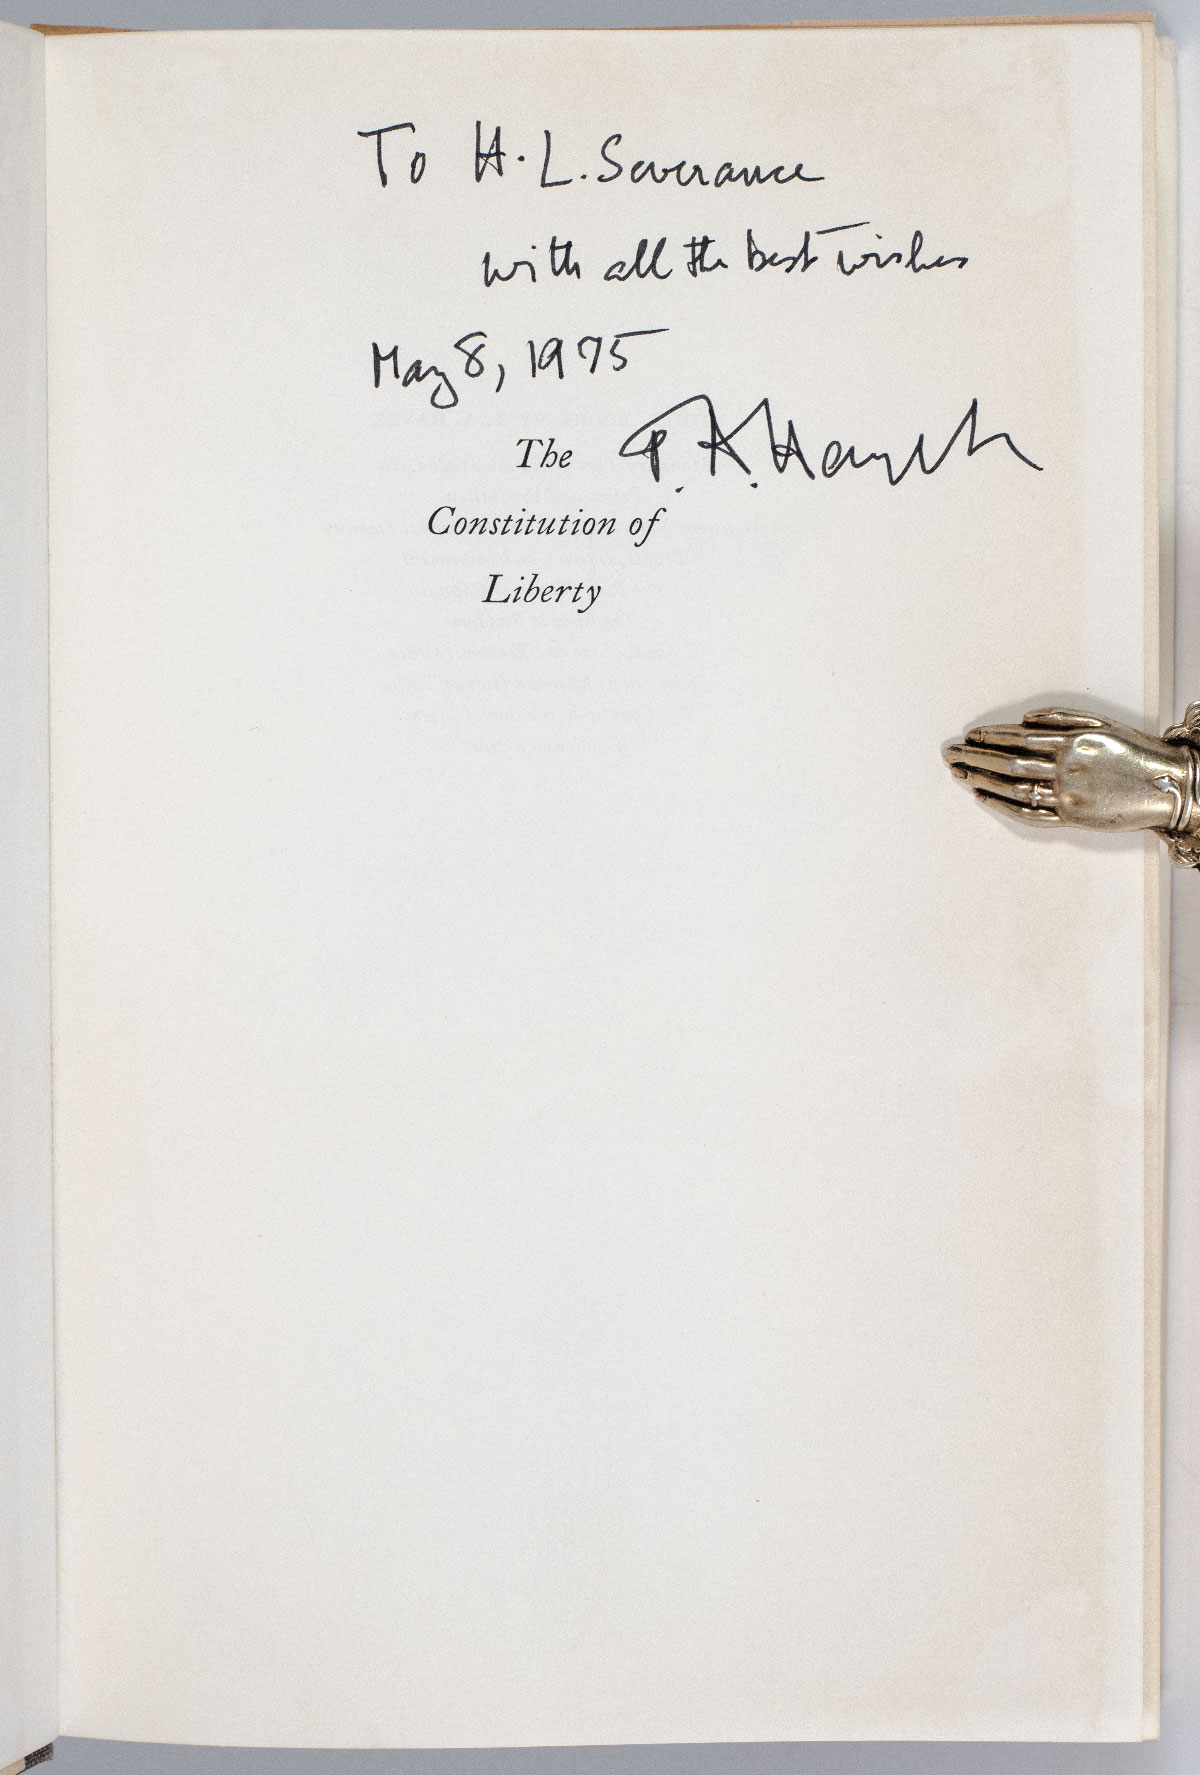 To H. L. Severance
with all the best wishes
May 8, 1975
F. A. Hayek
The
Constitution of
Liberty